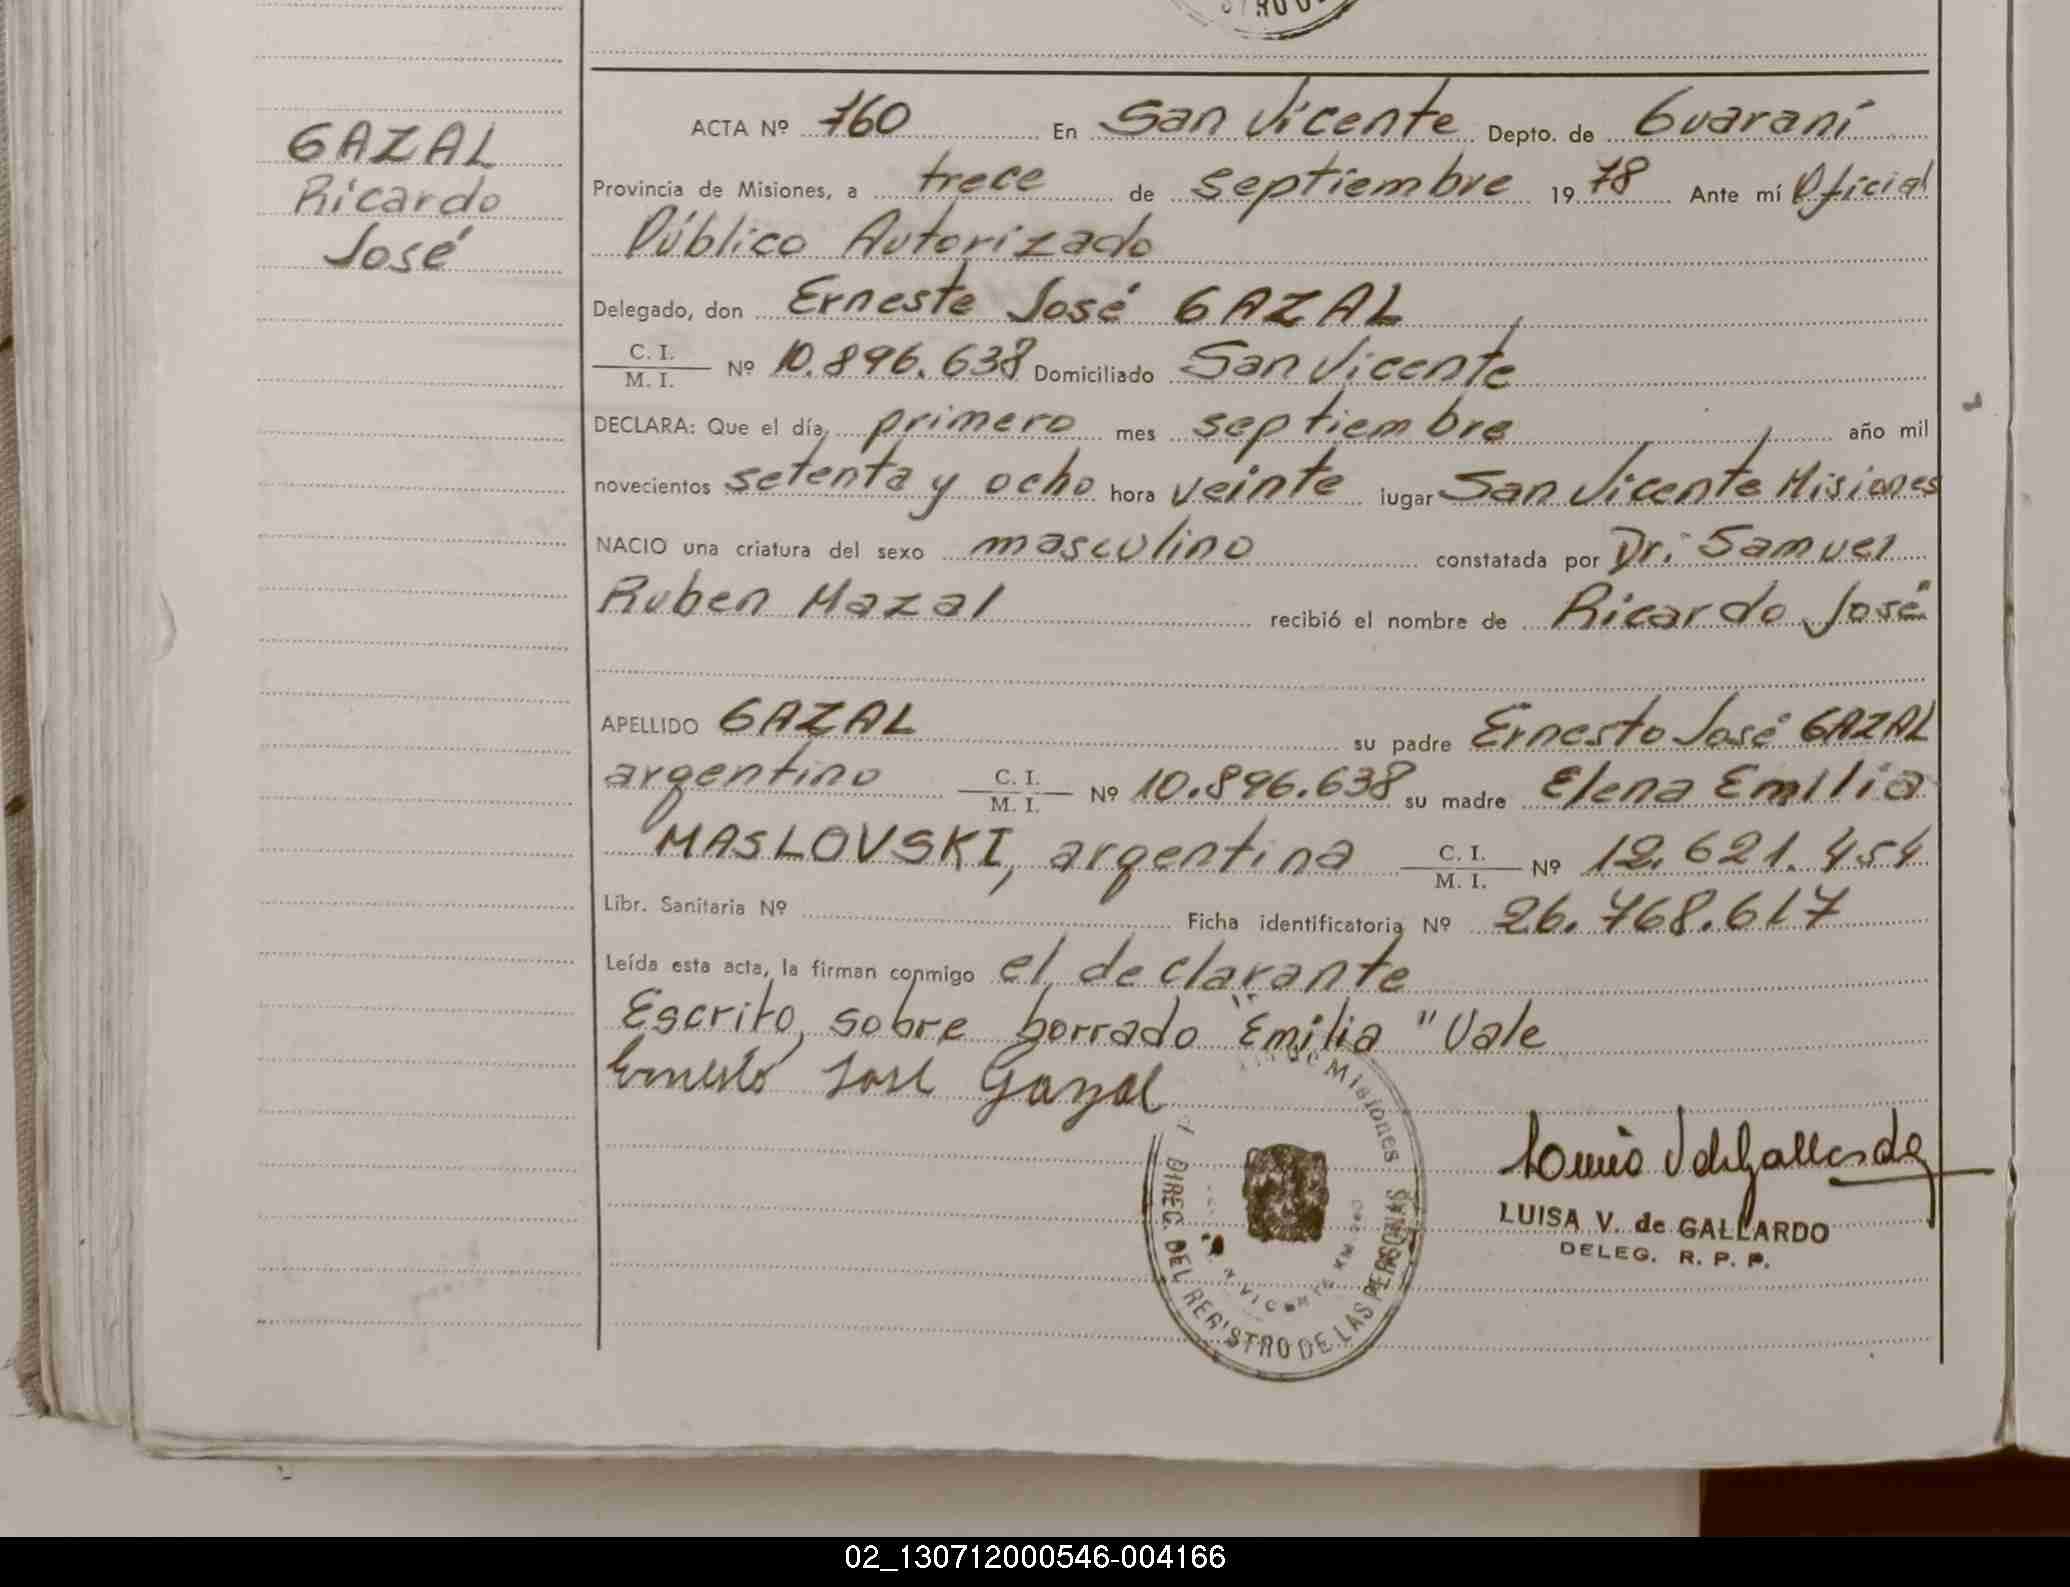 STRO DE
GAZAL
Ricardo
José
ACTA Nº 760 En San Vicente Depto. de Guaraní
Provincia de Misiones, a trece de septiembre 1978 Ante mí Oficial
Público Autorizado
Delegado, don Ernesto José GAZAL
C. I.
M. I. Nº 10.896.638 Domiciliado San Vicente
DECLARA: Que el día, primero mes septiembre año mil
novecientos setenta y ocho hora veinte lugar San Vicente Misiones
NACIO una criatura del sexo masculino constatada por Dr. Samuel
Ruben Mazal recibió el nombre de Ricardo José
APELLIDO GAZAL su padre Ernesto José GAZAL
argentino C. I.
M. I. Nº 10.896.638 su madre Elena Emilia
MASLOVSKI, argentina C. I.
M. I. Nº 12.621.454
Libr. Sanitaria Nº Ficha identificatoria Nº 26.768.617
Leída esta acta, la firman conmigo el declarante
Escrito, sobre borrado "Emilia" Vale
Ernesto José Gazal
Misiones
DIREC. DEL REGISTRO DE LAS PERSONAS
Luisa V de Gallardo
LUISA V. de GALLARDO
DELEG. R. P. P.
02_130712000546-004166